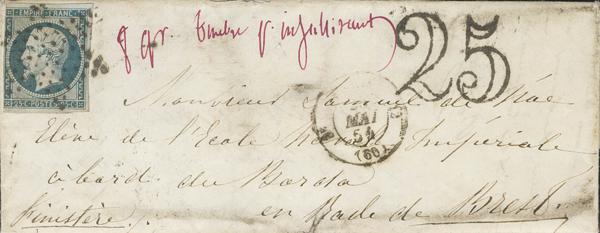 EMPIRE FRANC.
25c POSTES 25c
8 gr. timbre p. insuffisant
25
MAI
54
(60)
Monsieur Samuel de
Elève de l'Ecole Navale Impériale
à bord du Borda
en Rade de Brest.
Finistère.